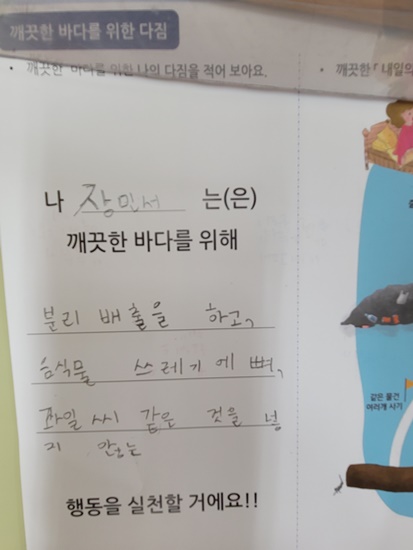 깨끗한 바다를 위한 다짐
• 깨끗한 바다를 위한 나의 다짐을 적어 보아요.
• 깨끗한 「내일의
나 장민서 는(은)
깨끗한 바다를 위해
분리 배출을 하고,
음식물 쓰레기에 뼈,
과일 씨 같은 것을 넣
지 않는
행동을 실천할 거에요!!
같은 물건
여러개 사기